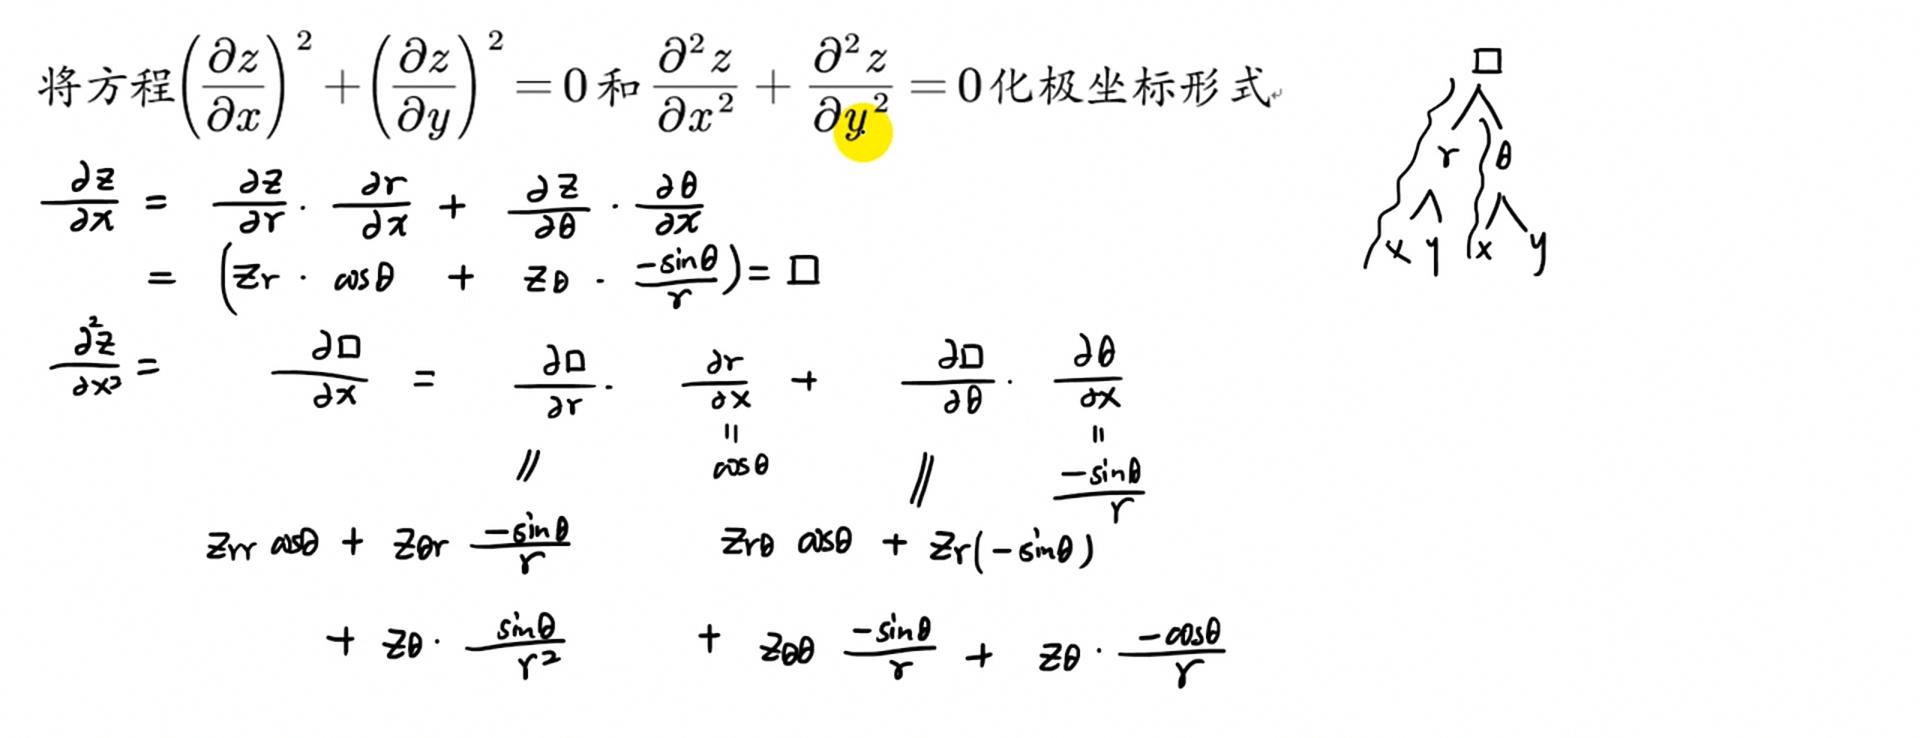 将方程(∂z/∂x)² + (∂z/∂y)² = 0 和 ∂²z/∂x² + ∂²z/∂y² = 0 化极坐标形式
∂z/∂x = ∂z/∂r · ∂r/∂x + ∂z/∂θ · ∂θ/∂x
= (Zr · cosθ + Zθ · -sinθ/r) = □
∂²z/∂x² = ∂□/∂x = ∂□/∂r · ∂r/∂x + ∂□/∂θ · ∂θ/∂x
= cosθ
= -sinθ/r
Zrr cosθ + Zθr -sinθ/r
+ Zθ · sinθ/r²
Zrθ cosθ + Zr(-sinθ)
+ Zθθ -sinθ/r + Zθ · -cosθ/r
□
r θ
x y x y